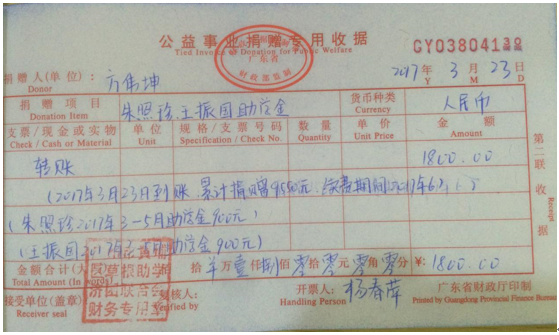 公益事业捐赠专用收据
Tied Invoice of Donation for Public Welfare
广东省
财政部监制
GY03804130
2017年 3月 23日
Y M D
捐赠人(单位): 方伟坤
Donor
捐赠项目 朱照珍、王振国助学金 货币种类 人民币
Donation Item Currency
支票/现金或实物 单位 规格/支票号码 数量 单价 金额
Check / Cash or Material Unit Specification / Check No. Quantity Unit Price Amount
转账 1800.00
(2017年3月23日到账,累计捐赠9500元,
(朱照珍2017年3-5月助学金900元)
(王振国2017年 助学金900元)
金额合计(大
Total Amount (in
拾 万壹仟捌佰零拾零元零角零分 ¥:1800.00
接受单位(盖章) 复核人: 开票人: 杨春萍 广东省财政厅印制
Receiver seal Verified Handling Person Printed by Guangdong Provincial Finance Bureau
助学
济困联合会
财务专用章
第二联 收据
Receipt